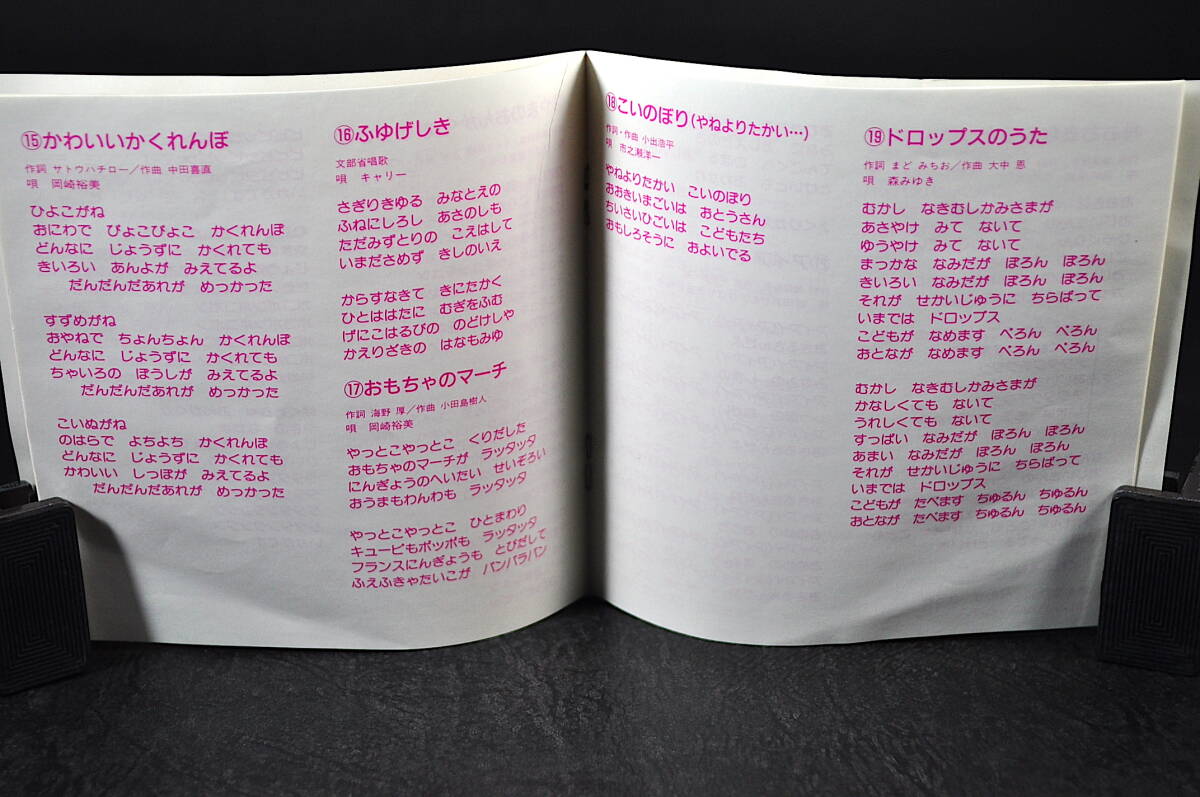 ⑮かわいいかくれんぼ
作詞 サトウハチロー／作曲 中田喜直
唄 岡崎裕美
ひよこがね
おにわで ぴょこぴょこ かくれんぼ
どんなに じょうずに かくれても
きいろい あんよが みえてるよ
だんだんだあれが めっかった
すずめがね
おやねで ちょんちょん かくれんぼ
どんなに じょうずに かくれても
ちゃいろの ぼうしが みえてるよ
だんだんだあれが めっかった
こいぬがね
のはらで よちよち かくれんぼ
どんなに じょうずに かくれても
かわいい しっぽが みえてるよ
だんだんだあれが めっかった
⑯ふゆげしき
文部省唱歌
唄 キャリー
さぎりきゆる みなとえの
ふねにしろし あさのしも
ただみずとりの こえはして
いまださめず きしのいえ
からすなきて きにたかく
ひとははたに むぎをふむ
げにこはるびの のどけしや
かえりざきの はなもみゆ
⑰おもちゃのマーチ
作詞 海野 厚／作曲 小田島樹人
唄 岡崎裕美
やっとこやっとこ くりだした
おもちゃのマーチが ラッタッタ
にんぎょうのへいたい せいぞろい
おうまもわんわも ラッタッタ
やっとこやっとこ ひとまわり
キューピもポッポも ラッタッタ
フランスにんぎょうも とびだして
ふえふきゃたいこが パンパラパン
⑱こいのぼり(やねよりたかい…)
作詞・作曲 小出浩平
唄 市之瀬洋一
やねよりたかい こいのぼり
おおきいまごいは おとうさん
ちいさいひごいは こどもたち
おもしろそうに およいでる
⑲ドロップスのうた
作詞 まど みちお／作曲 大中 恩
唄 森みゆき
むかし なきむしかみさまが
あさやけ みて ないて
ゆうやけ みて ないて
まっかな なみだが ぽろん ぽろん
きいろい なみだが ぽろん ぽろん
それが せかいじゅうに ちらばって
いまでは ドロップス
こどもが なめます ぺろん ぺろん
おとなが なめます ぺろん ぺろん
むかし なきむしかみさまが
かなしくても ないて
うれしくても ないて
すっぱい なみだが ぽろん ぽろん
あまい なみだが ぽろん ぽろん
それが せかいじゅうに ちらばって
いまでは ドロップス
こどもが たべます ちゅるん ちゅるん
おとなが たべます ちゅるん ちゅるん